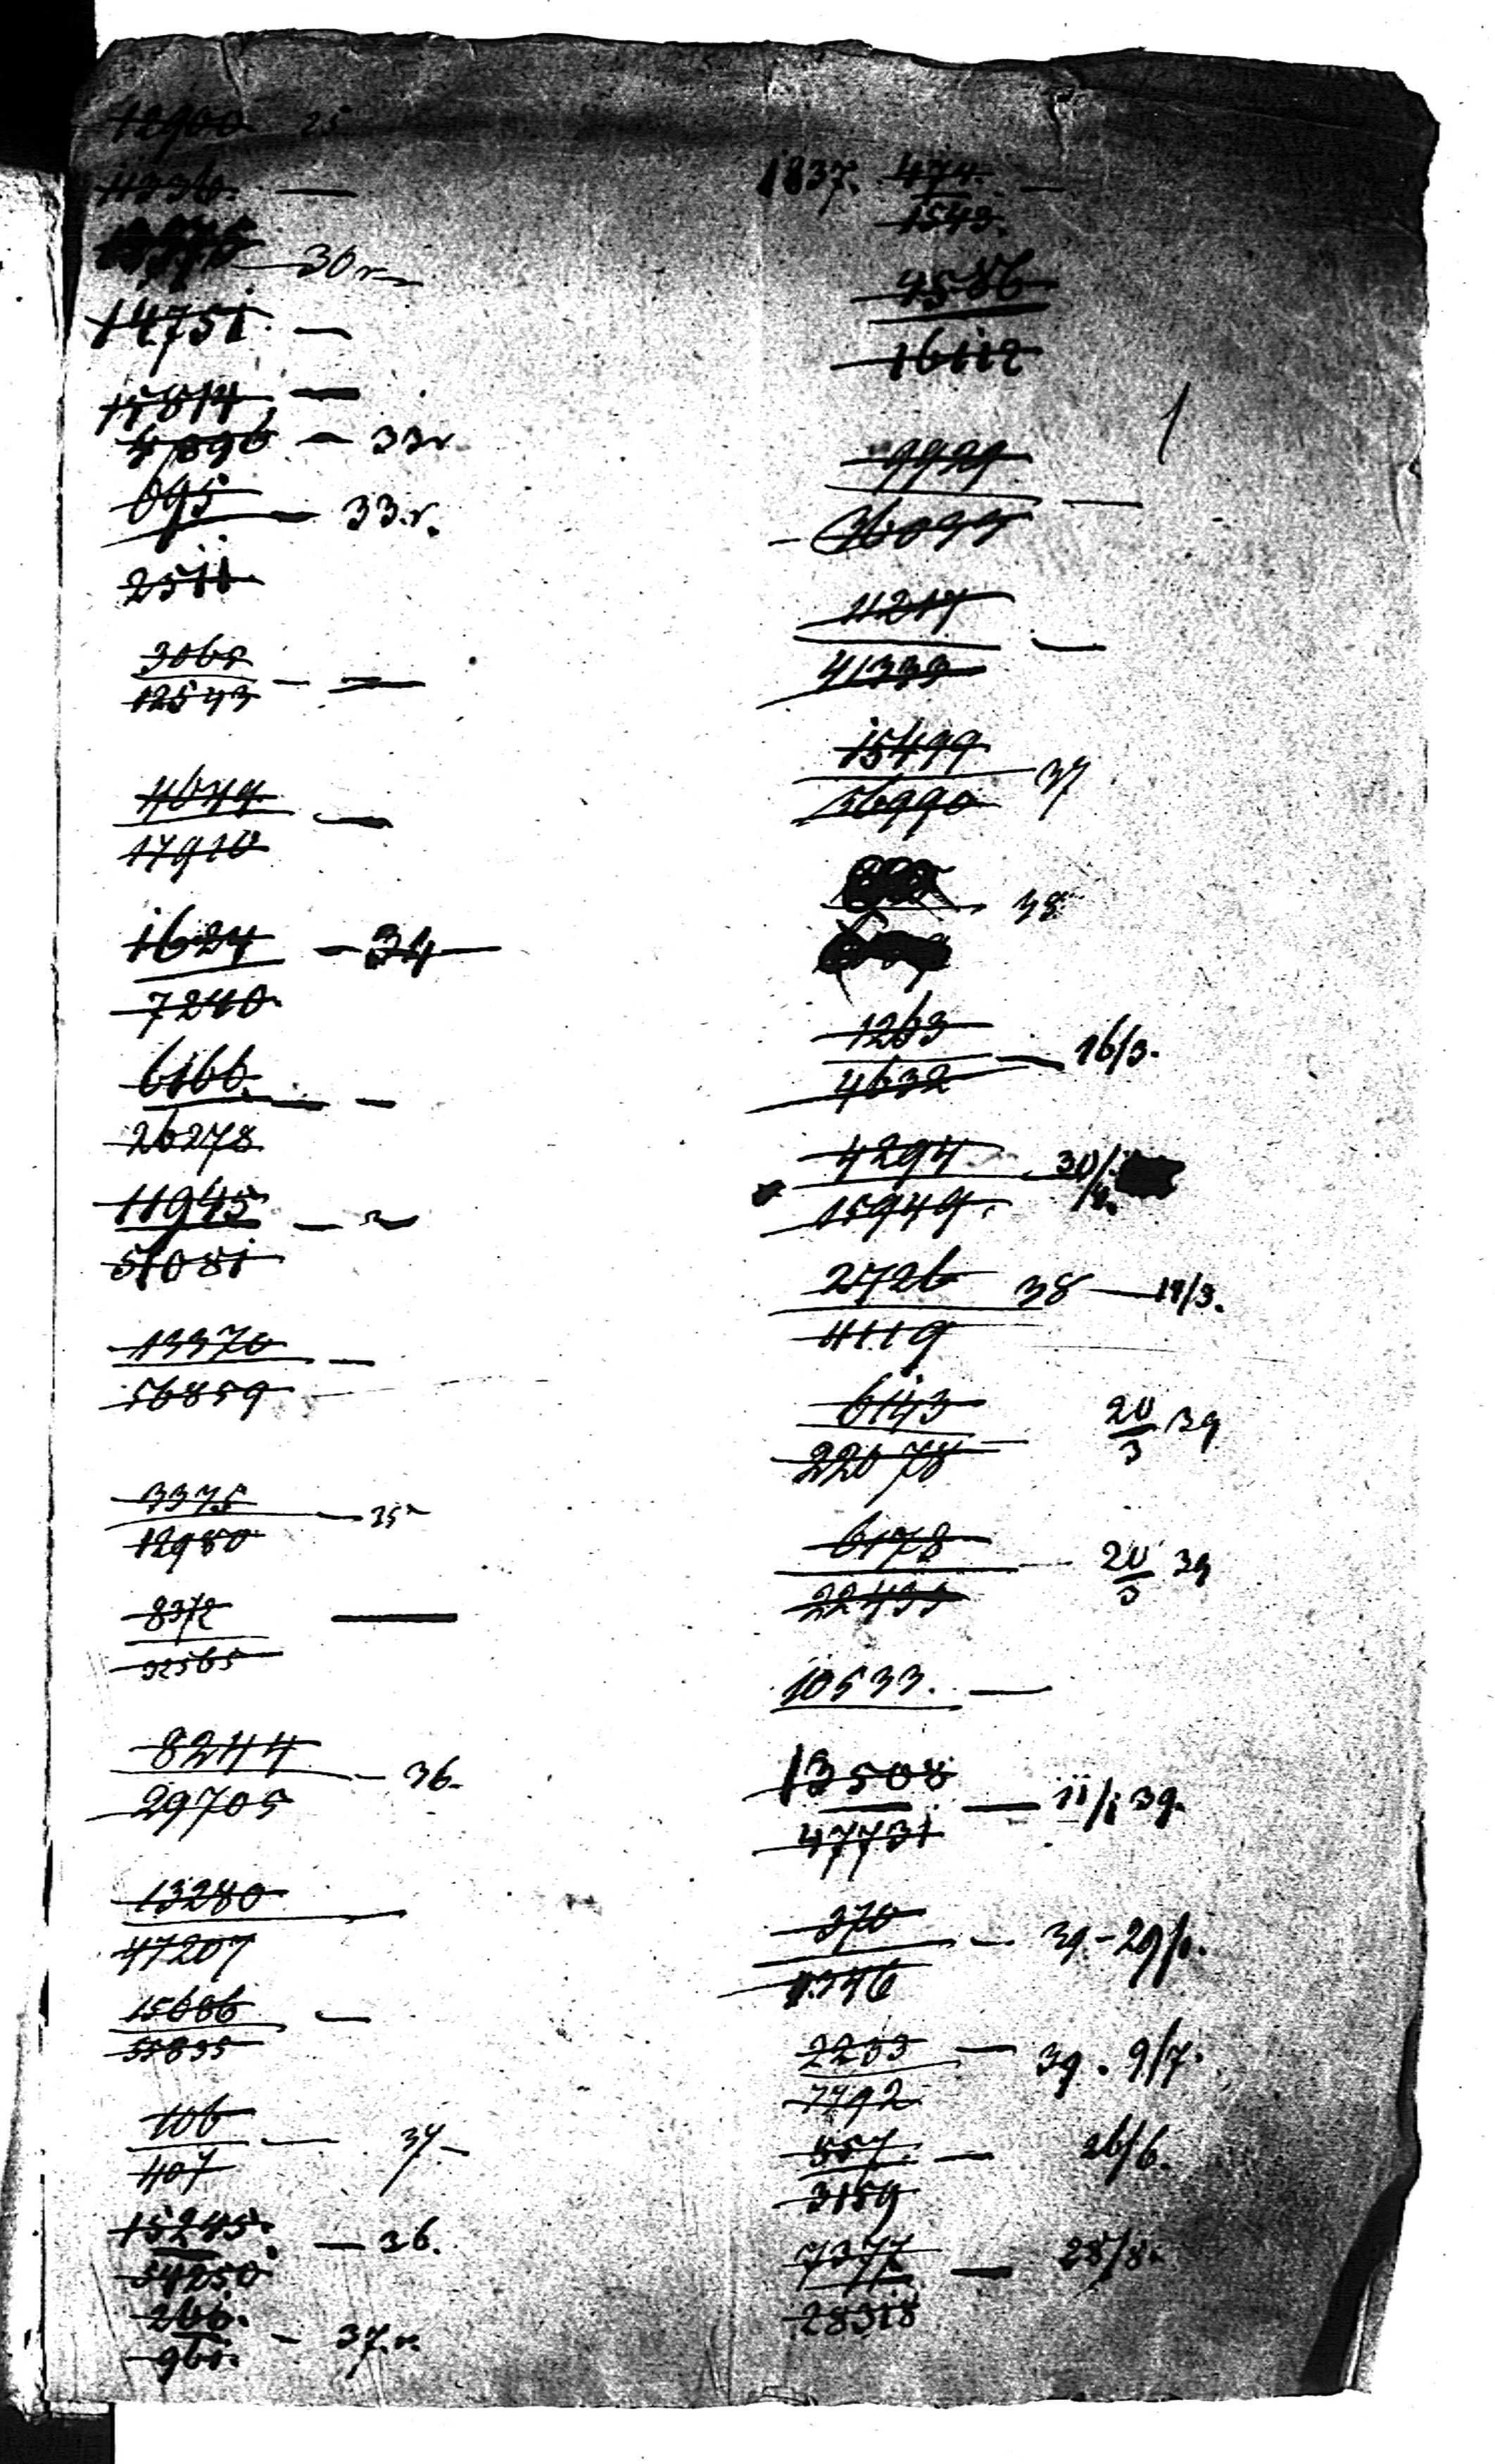 12900 25
11336. —
30 r
14751. —
15814 —
4096 — 33r
695 — 33.r.
2511
3068 —
12543
4649 —
17910
1624 — 34
7240.
6166. —
26278
11945 —
51081
13370 —
56859
3375 — 35
12980
8372 —
32565
8244 — 36.
29705
13280
47207
15686 —
55835
106 — 37
407
15245. — 36.
54250
266. — 37.r.
960.
1837. 474. —
1543.
4586
16112
9929 —
36099
11217 —
41333
15499 37
56990
38
1263 — 16/3.
4632
4294 30/
15949.
2726 38 — 19/3.
4119
6143 — 20/3 39
22078
6178 — 20/3 39
22433
10533. —
13508 — 11/1 39.
47731
370 — 39 - 29/
1346
2253 — 39. 9/7.
7792
557. — 26/6.
3159
7377 — 28/8.
28318